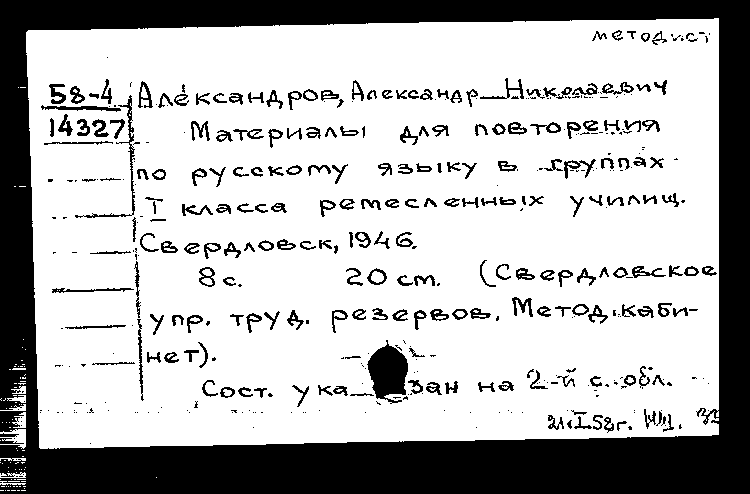 методист
58-4 Александров, Александр Николаевич
14327 Материалы для повторения
по русскому языку в группах
I класса ремесленных училищ.
Свердловск, 1946.
8 с. 20 см. (Свердловское
упр. труд. резервов. Метод. каби-
нет).
Сост. указан на 2-й с. обл.
21.I.58г.